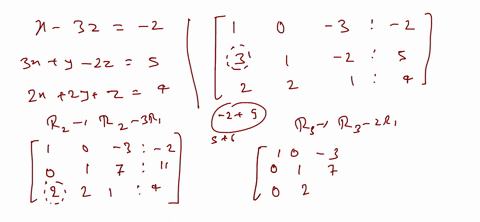 x - 3z = -2
3x + y - 2z = 5
2x + 2y + z = 4
1 0 -3 : -2
3 1 -2 : 5
2 2 1 : 4
R2 → R2 - 3R1
-2 + 9
5 + 6
1 0 -3 : -2
0 1 7 : 11
2 2 1 : 4
R3 → R3 - 2R1
1 0 -3
0 1 7
0 2